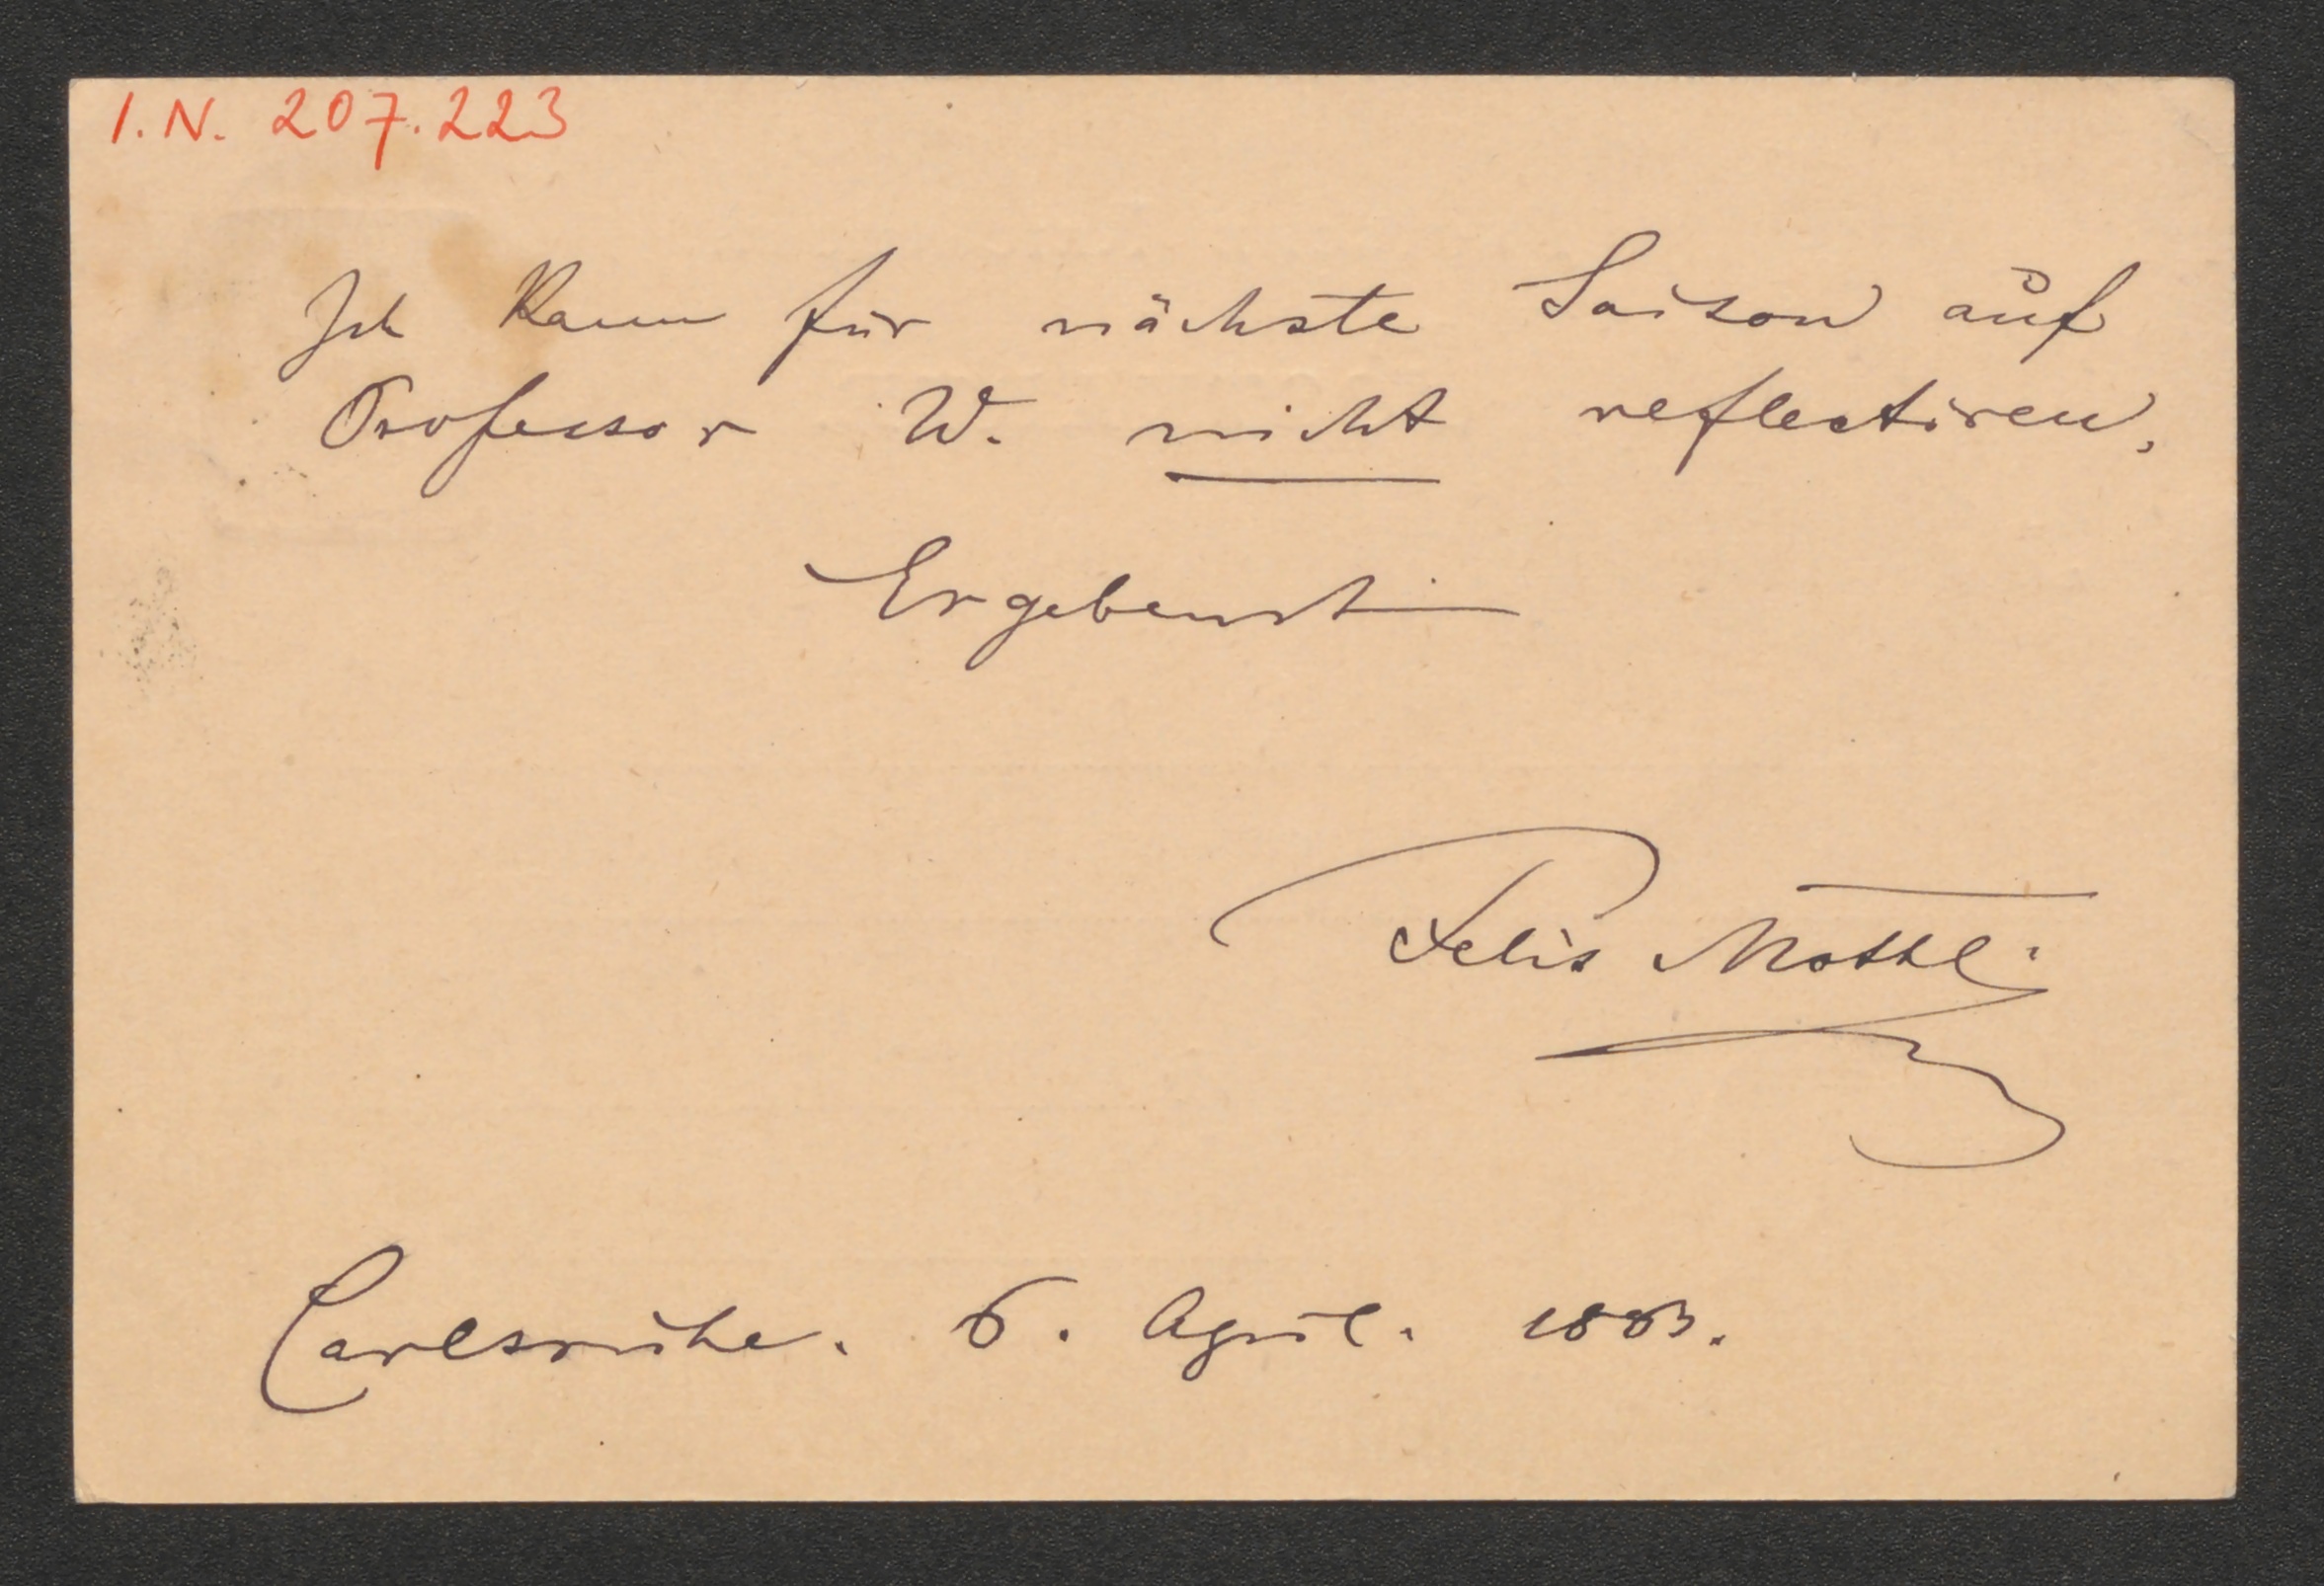 I.N. 207.223
Ich kann für nächste Saison auf
Professor W. nicht reflectiren.
Ergebenst
Felix Mottl.
Carlsruhe. 6. April. 1883.